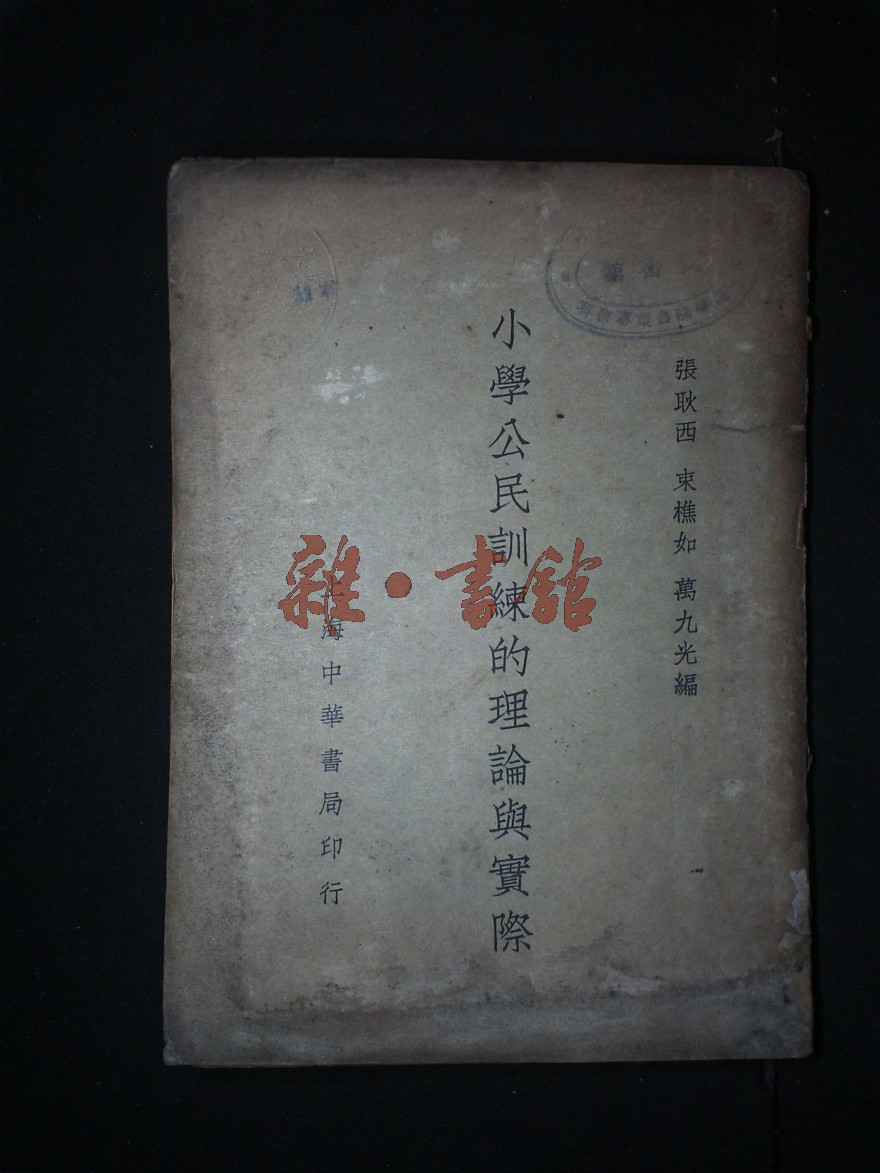 張耿西 束樵如 萬九光編
小學公民訓練的理論與實際
上海中華書局印行
雜·書館